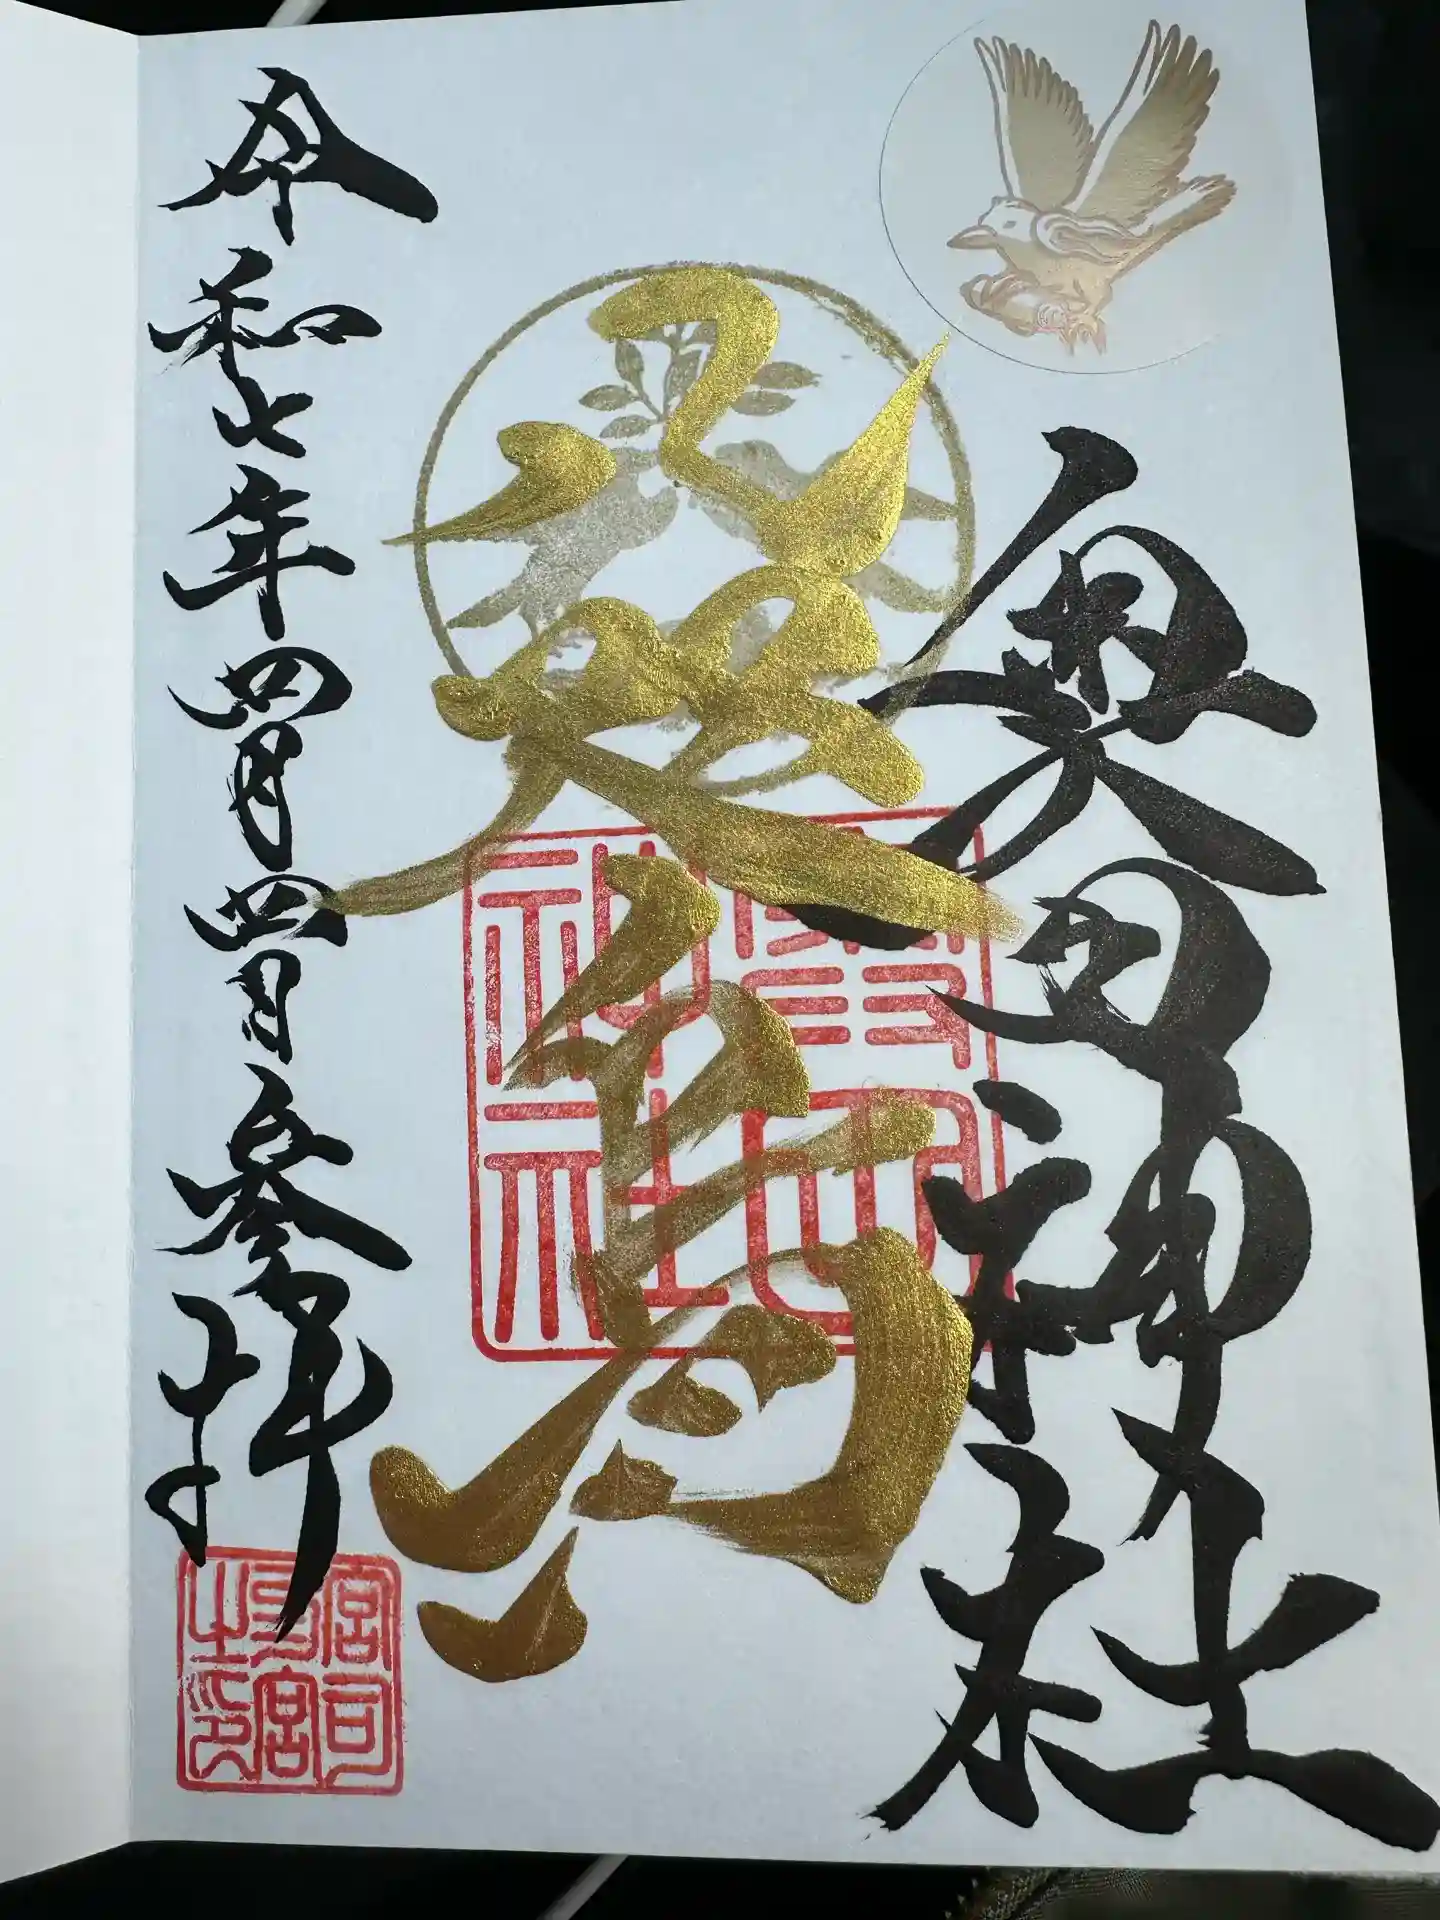 奥田神社
八咫烏
令和七年四月四日参拝
奥田神社
宮司
之印